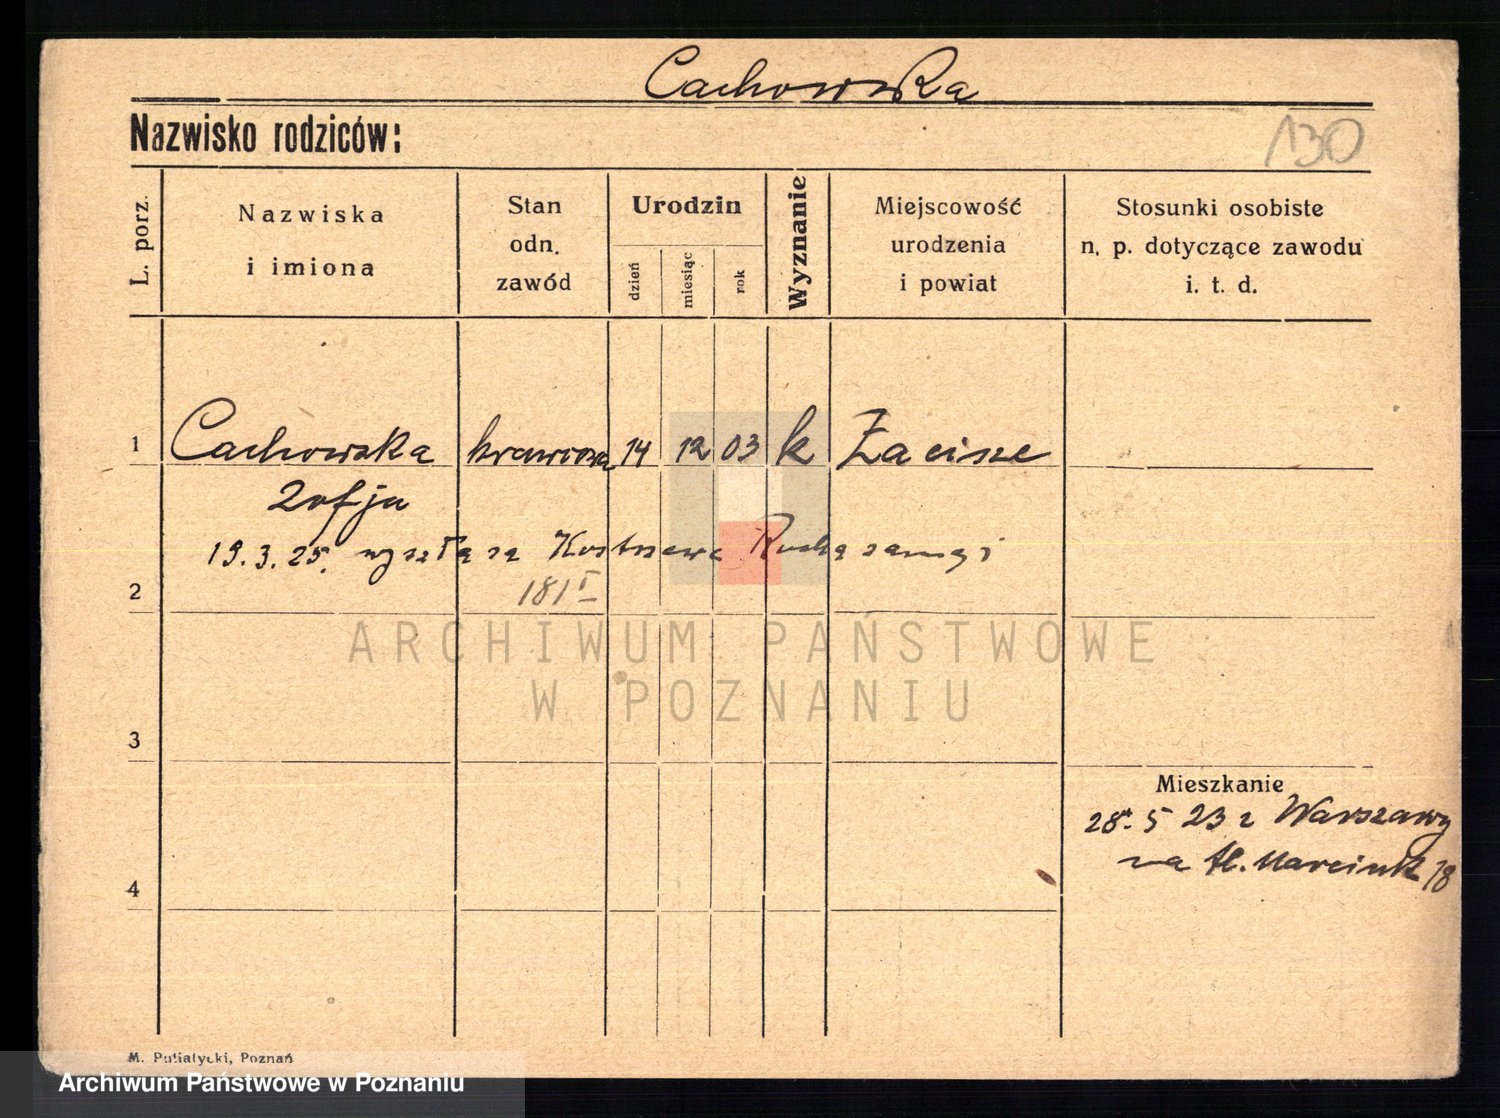 Cachowska
Nazwisko rodziców:
130
L. porz.
Nazwiska
i imiona
Stan
odn.
zawód
Urodzin
dzień
miesiąc
rok
Wyznanie
Miejscowość
urodzenia
i powiat
Stosunki osobiste
n. p. dotyczące zawodu
i. t. d.
1 Cachowska krawcowa 14 12 03 k Zacisze
Zofja
19.3.25. wyszła za
181 I
2
ARCHIWUM PAŃSTWOWE
W POZNANIU
3
Mieszkanie
28. 5 23 z Warszawy
na
18
4
M. Putiatycki, Poznań
Archiwum Państwowe w Poznaniu